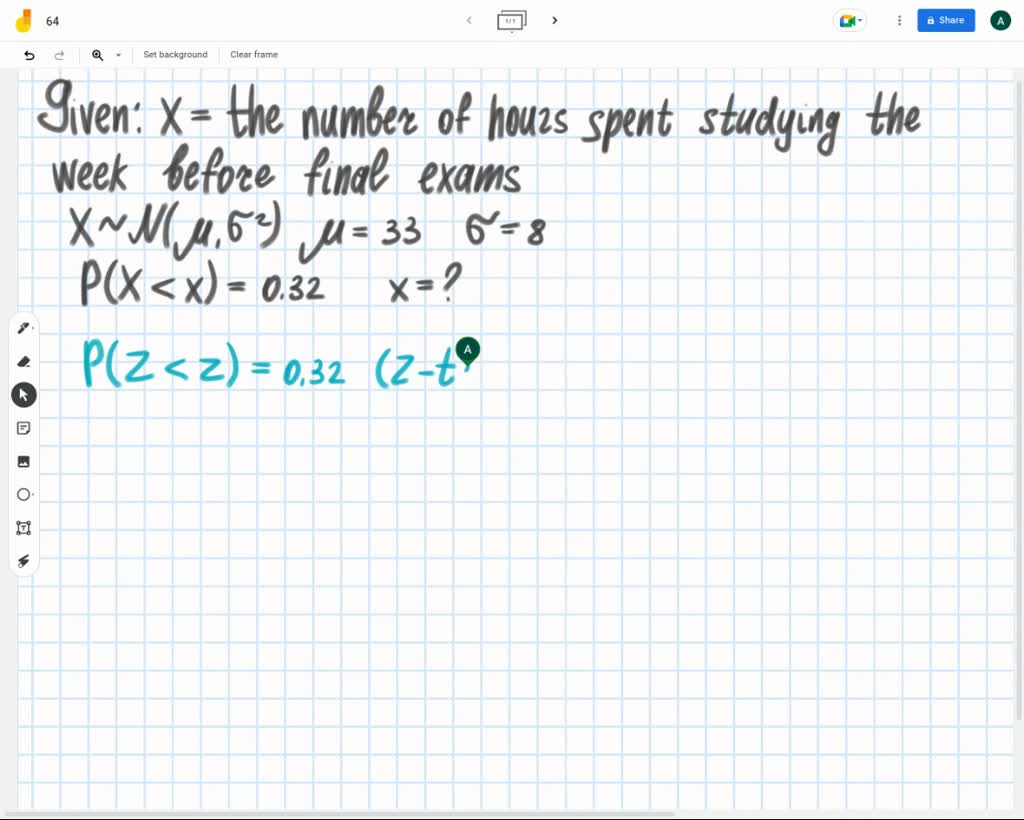 64
1/1
Share
A
Set background
Clear frame
Given: X = the number of hours spent studying the
week before final exams
X ~ N(μ, σ²) μ = 33 σ = 8
P(X < x) = 0.32 x = ?
P(Z < z) = 0.32 (Z-t
A